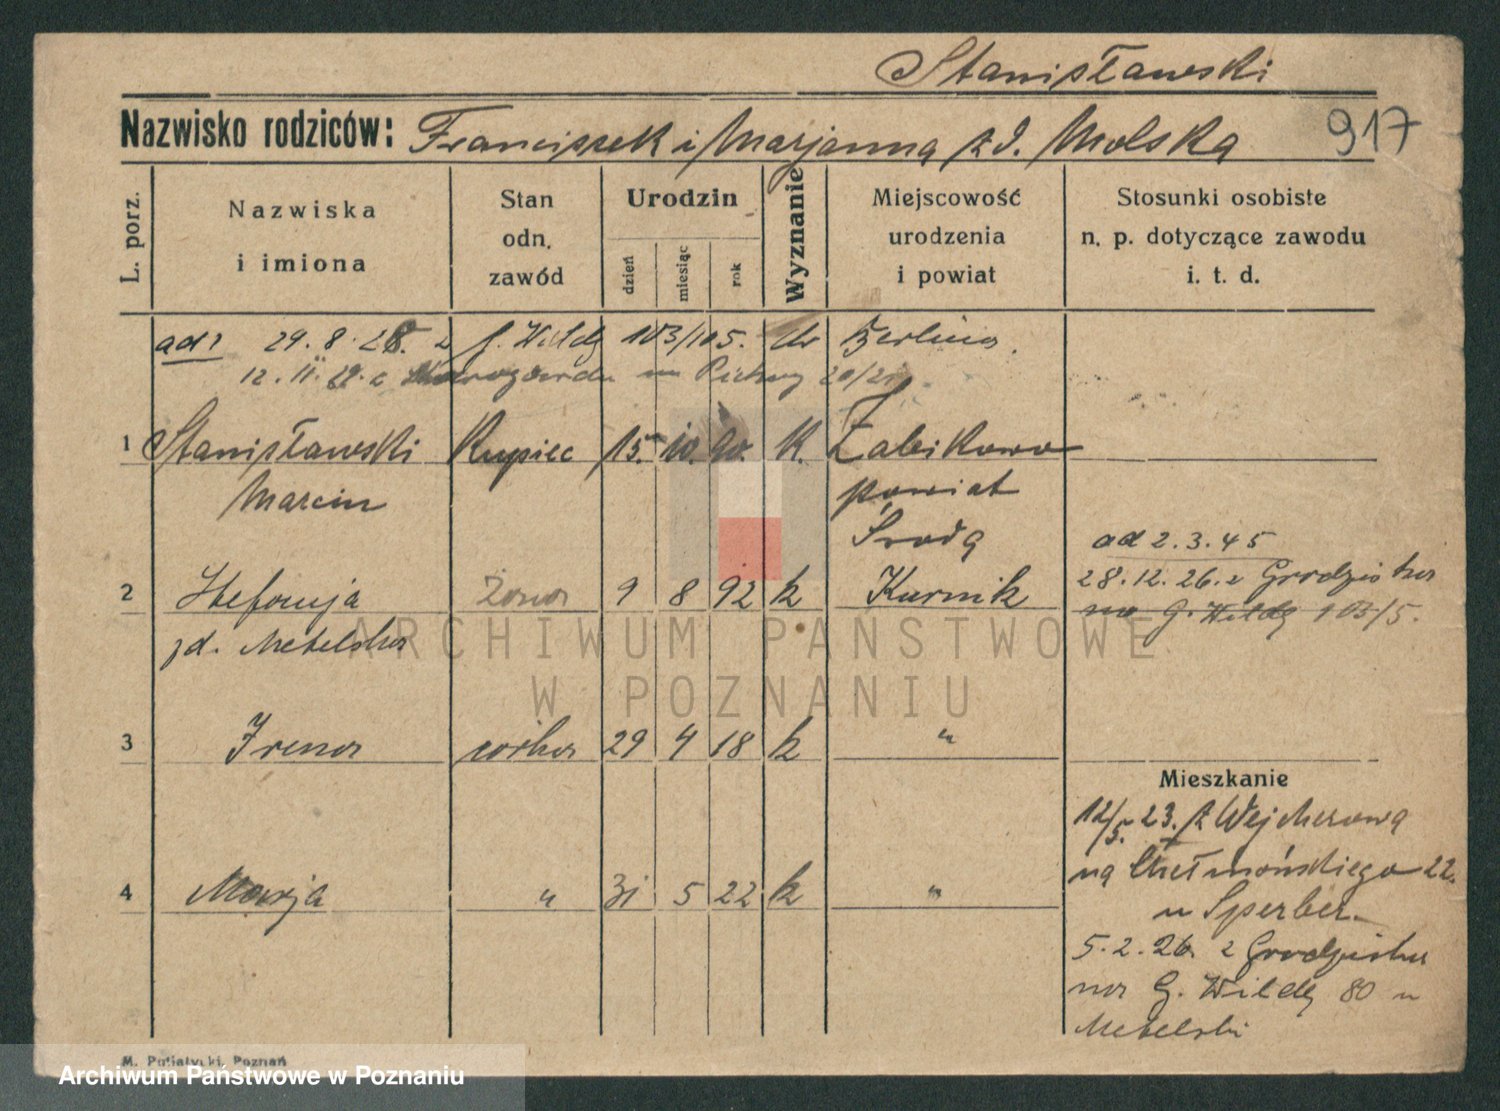 Stanisławski
Nazwisko rodziców: Franciszek i Marjanna z d. Molska 917
L. porz.
Nazwiska
i imiona
Stan
odn.
zawód
Urodzin
dzień
miesiąc
rok
Wyznanie
Miejscowość
urodzenia
i powiat
Stosunki osobiste
n. p. dotyczące zawodu
i. t. d.
29. 8. z G. Wildy 103/105. do Berlina.
12. 11. 29. z na 20/21
1 Stanisławski Kupiec 15. 10. 90. K. Żabikowo
Marcin powiat
Środa
ad 2. 3. 4 5
2 Stefanja Żona 9 8 92 k Kurnik
28. 12. 26. z Grodziska
na G. Wildę 103/5.
zd. Metelska
3 Irena córka 29 4 18 k "
Mieszkanie
12/5. 23. z Wejherowa
na Chełmońskiego 22.
4 Marja " 31 5 22 k "
u Sperber.
5. 2. 26. z Grodziska
na G. Wildę 80 u
Metelski
M. Putiatycki, Poznań
ARCHIWUM PAŃSTWOWE
W POZNANIU
Archiwum Państwowe w Poznaniu